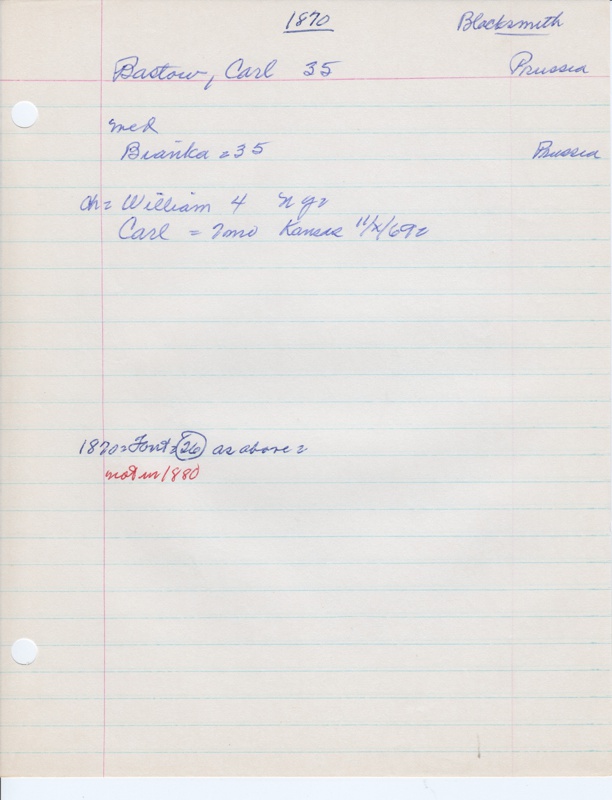 1870 Blacksmith
Bastow, Carl 35 Prussia
med
Bianka = 35 Prussia
ch= William 4 N.Y.
Carl = 7mo Kansas 11/x/69=
1870= = 26 as above =
not in 1880